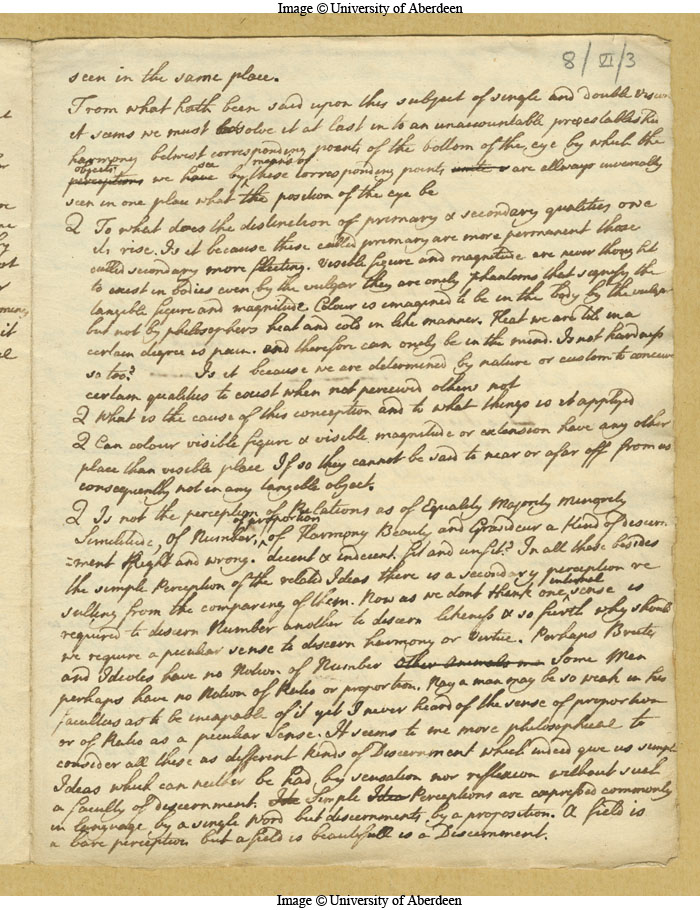 Image © University of Aberdeen
8/VI/3
seen in the same place.
From what hath been said upon this subject of single and double vision
it seems we must resolve it at last in to an unaccountable preestablished
harmony betwixt corresponding points of the bottom of the eye by which the
objects see means of
perceptions we have by these corresponding points are allways invariably
seen in one place what the position of the eye be
Q To what does the distinction of primary & secondary qualities owe
its rise. Is it because these called primary are more permanent those
called secondary more fleeting. Visible figure and magnitude are never thought
to exist in bodies even by the vulgar they are only phantoms that signify the
tangible figure and magnitude. Colour is imagined to be in the body by the vulgar
but not by philosophers heat and cold in like manner. Heat we are till in a
certain degree is pain. and therefore can onely be in the mind. Is not hardness
so too? Is it because we are determined by nature or custom to conceive
certain qualities to exist when not perceived others not
Q What is the cause of this conception and to what things is it applyed
Q Can colour visible figure & visible magnitude or extension have any other
place than visible place If so they cannot be said to near or afar off from us
consequently not in any tangible object.
Q Is not the perception of Relations as of Equality Majority Minority
of proportion
Similitude, of Number, of Harmony Beauty and Grandeur a Kind of discern
=ment Right and wrong. decent & indecent. fit and unfit? In all these besides
the simple Perception of the related Ideas there is a secondary perception re
internal
sulting from the comparing of them. Now as we dont think one sense is
required to discern Number another to discern likeness & so forth why should
we require a peculiar sense to discern harmony or Virtue. Perhaps Brutes
and Ideots have no Notion of Number Other Animals Some Men
perhaps have no Notion of Ratio or proportion. Nay a man may be so weak in his
faculties as to be incapable of it yet I never heard of the sense of proportion
or of Ratio as a peculiar Sense. It seems to me more philosophical to
consider all these as different kinds of Discernment which indeed give us simple
Ideas which can neither be had by sensation nor reflexion without such
a faculty of discernment. Simple Idea Perceptions are expressed commonly
in language by a single Word but discernments by a proposition. A field is
a bare perception but a field is beautifull is a Discernment.
Image © University of Aberdeen